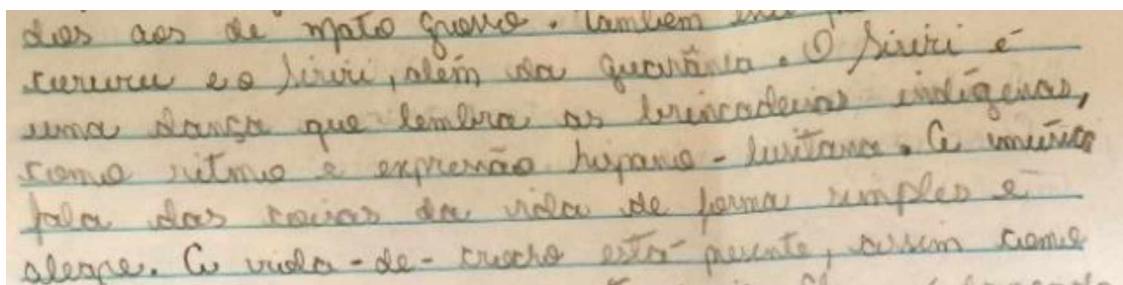 dos aos de mato grosso. Também
cururu e o siriri, além da guarânia. O siriri é
uma dança que lembra as brincadeiras indígenas,
como ritmo e expressão hispano-lusitana. A música
fala das coisas da vida de forma simples e
alegre. A viola-de-cocho está presente, assim como